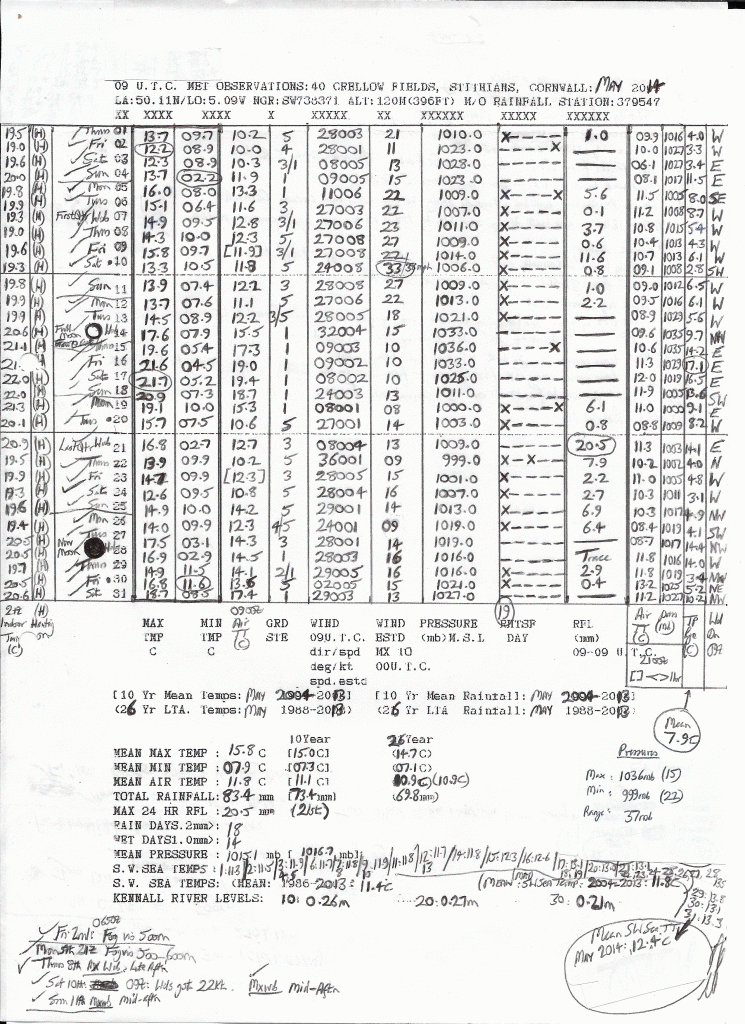 09 U.T.C. MET OBSERVATIONS:40 CRELLOW FIELDS, STITHIANS, CORNWALL: MAY 2014
LA:50.11N/LO:5.09W NGR:SW738371 ALT:120M(396FT) M/O RAINFALL STATION:379547
XX XXXX XXXX XXXX X XXXXX XX XXXXXX XXXXX XXXXXX
19.5 (H) Thurs 01 13.7 09.7 10.2 5 28003 21 1010.0 X---- 1.0 09.9 1016 4.0 W
19.0 (H) Fri 02 12.2 08.9 10.0 4 28001 11 1023.0 ----X 10.0 1027 3.3 W
19.6 (H) Sat 03 12.3 08.9 10.3 3/1 08005 13 1028.0 ----- 06.1 1027 3.4 E
20.0 (H) Sun 04 13.7 02.2 11.9 1 09005 15 1023.0 ----- 08.1 1017 11.5 E
19.8 (H) Mon 05 16.0 08.0 13.3 1 11006 22 1009.0 X---X 5.6 11.5 1005 8.0 SE
19.9 (H) Tues 06 15.1 06.4 11.6 3 27003 22 1007.0 X---- 0.1 11.2 1008 8.7 W
19.3 (H) First Qtr Wed 07 14.9 09.5 12.8 3/1 27006 23 1011.0 X---- 3.7 10.8 1015 5.4 W
19.0 (H) Thurs 08 14.3 10.0 12.3 5 27008 27 1009.0 X---- 0.6 10.4 1013 4.3 W
19.6 (H) Fri 09 15.8 09.7 [11.9] 3/1 27008 22 1014.0 X---- 11.6 10.7 1013 6.1 W
19.3 (H) Sat 10 13.3 10.5 11.8 5 24008 33 1006.0 X---- 0.8 09.1 1008 2.8 SW
19.8 (H) Sun 11 13.9 07.4 12.2 3 28008 27 1009.0 X---- 1.0 09.0 1012 6.5 W
19.9 (H) Mon 12 13.7 07.6 11.1 5 27006 22 1013.0 X---- 2.2 09.5 1016 6.1 W
19.9 (H) Tues 13 14.5 08.9 12.2 3/5 28005 18 1021.0 ----- 08.9 1029 5.6 W
20.6 (H) Full Moon 14 17.6 07.9 15.5 1 32004 15 1033.0 ----- 09.6 1035 9.7 NW
21. Thurs 15 19.6 05.4 17.3 1 09003 10 1036.0 ----X 10.6 1035 14.2 E
21. Fri 16 21.6 04.5 19.0 1 09002 10 1033.0 ----- 11.3 1029 17.1 E
22.0 (H) Sat 17 21.7 05.2 19.4 1 08002 10 1025.0 ----- 12.0 1019 16.5 E
22.0 (H) Sun 18 20.9 07.3 18.7 1 24003 13 1011.0 ----- 11.9 1005 13.6 SW
21.3 (H) Mon 19 19.1 10.0 15.3 1 08001 08 1000.0 X---X 6.1 11.0 1000 9.1 E
20.1 (H) Tues 20 15.7 07.5 10.6 5 27001 14 1003.0 X---- 0.8 08.8 1009 8.2 W
20.9 (H) Last Qtr Wed 21 16.8 02.7 12.7 3 08004 13 1009.0 20.5 11.3 1003 14.1 E
19.5 (H) Thurs 22 13.9 09.9 10.2 5 36001 09 999.0 X-X-- 7.9 10.2 1002 4.0 N
19.9 (H) Fri 23 14.7 09.9 [12.3] 3 28005 15 1001.0 X---- 2.2 11.0 1005 4.8 W
19.3 (H) Sat 24 12.6 09.5 10.8 5 28004 16 1007.0 X---- 2.7 10.3 1011 3.1 W
19.6 (H) Sun 25 14.9 10.0 14.2 5 29001 14 1013.0 X---- 6.9 10.3 1017 4.9 NW
19.4 (H) Mon 26 14.0 09.9 12.3 4/5 24001 09 1019.0 X---- 6.4 08.4 1019 4.1 SW
20.5 (H) Tues 27 17.5 03.1 14.3 3 28001 14 1019.0 ----- 08.7 1017 14.4 NW
20.5 (H) New Moon 28 16.9 02.9 14.5 1 28003 16 1016.0 ----- Trace 11.8 1016 14.0 W
19.7 (H) Thurs 29 14.9 11.5 14.1 2/1 29005 16 1016.0 X---- 2.9 11.8 1019 3.4 NW
20.5 (H) Fri 30 16.8 11.6 13.6 5 02005 15 1021.0 X---- 0.4 13.2 1025 5.2 NE
20.6 (H) Sat 31 18.7 08.5 17.4 1 29003 13 1027.0 ----- 11.2 1027 10.2 NW
19
MAX MIN Air GRD WIND WIND PRESSURE RMTSF RFL
TMP TMP TT STE 09U.T.C. ESTD (mb)M.S.L DAY (mm)
C C C dir/spd MX TO 09-09 U.T.C.
deg/kt 00U.T.C.
spd.estd
[10 Yr Mean Temps: MAY 2004-2013] [10 Yr Mean Rainfall: MAY 2004-2013]
(26 Yr LTA. Temps: MAY 1988-2013) (26 Yr LTA Rainfall: MAY 1988-2013)
Mean 7.9C
10Year 26Year
MEAN MAX TEMP : 15.8 C [15.0C] (14.7C)
MEAN MIN TEMP : 07.9 C [07.3C] (07.1C)
MEAN AIR TEMP : 11.8 C [11.1C] 10.9C) (10.9C)
TOTAL RAINFALL: 83.4 mm [73.4mm] (69.8mm)
MAX 24 HR RFL : 20.5 mm (21st)
RAIN DAYS.2mm>: 18
WET DAYS1.0mm>: 14
MEAN PRESSURE : 1015.1 mb [ 1016.7 mb]
Pressures
Max: 1036mb (15)
Min: 999mb (22)
Range: 37mb
S.W. SEA TEMPS: (MEAN: 1986-2013: 11.4C (Mean SW Sea Temp: 2004-2013: 11.8C)
KENNALL RIVER LEVELS: 10: 0.26m 20: 0.27m 30: 0.21m
Mean SW Sea TT
May 2014: 12.4C
0650z
Fri 2nd: Fog vis 500m
Mon 5th 21z Fog vis 500-600m
Thurs 8th
Sat 10th 09z: Wds gst 22kt. Mxwd Mid-Aftn
Sun 11th Mxwd mid-aftn